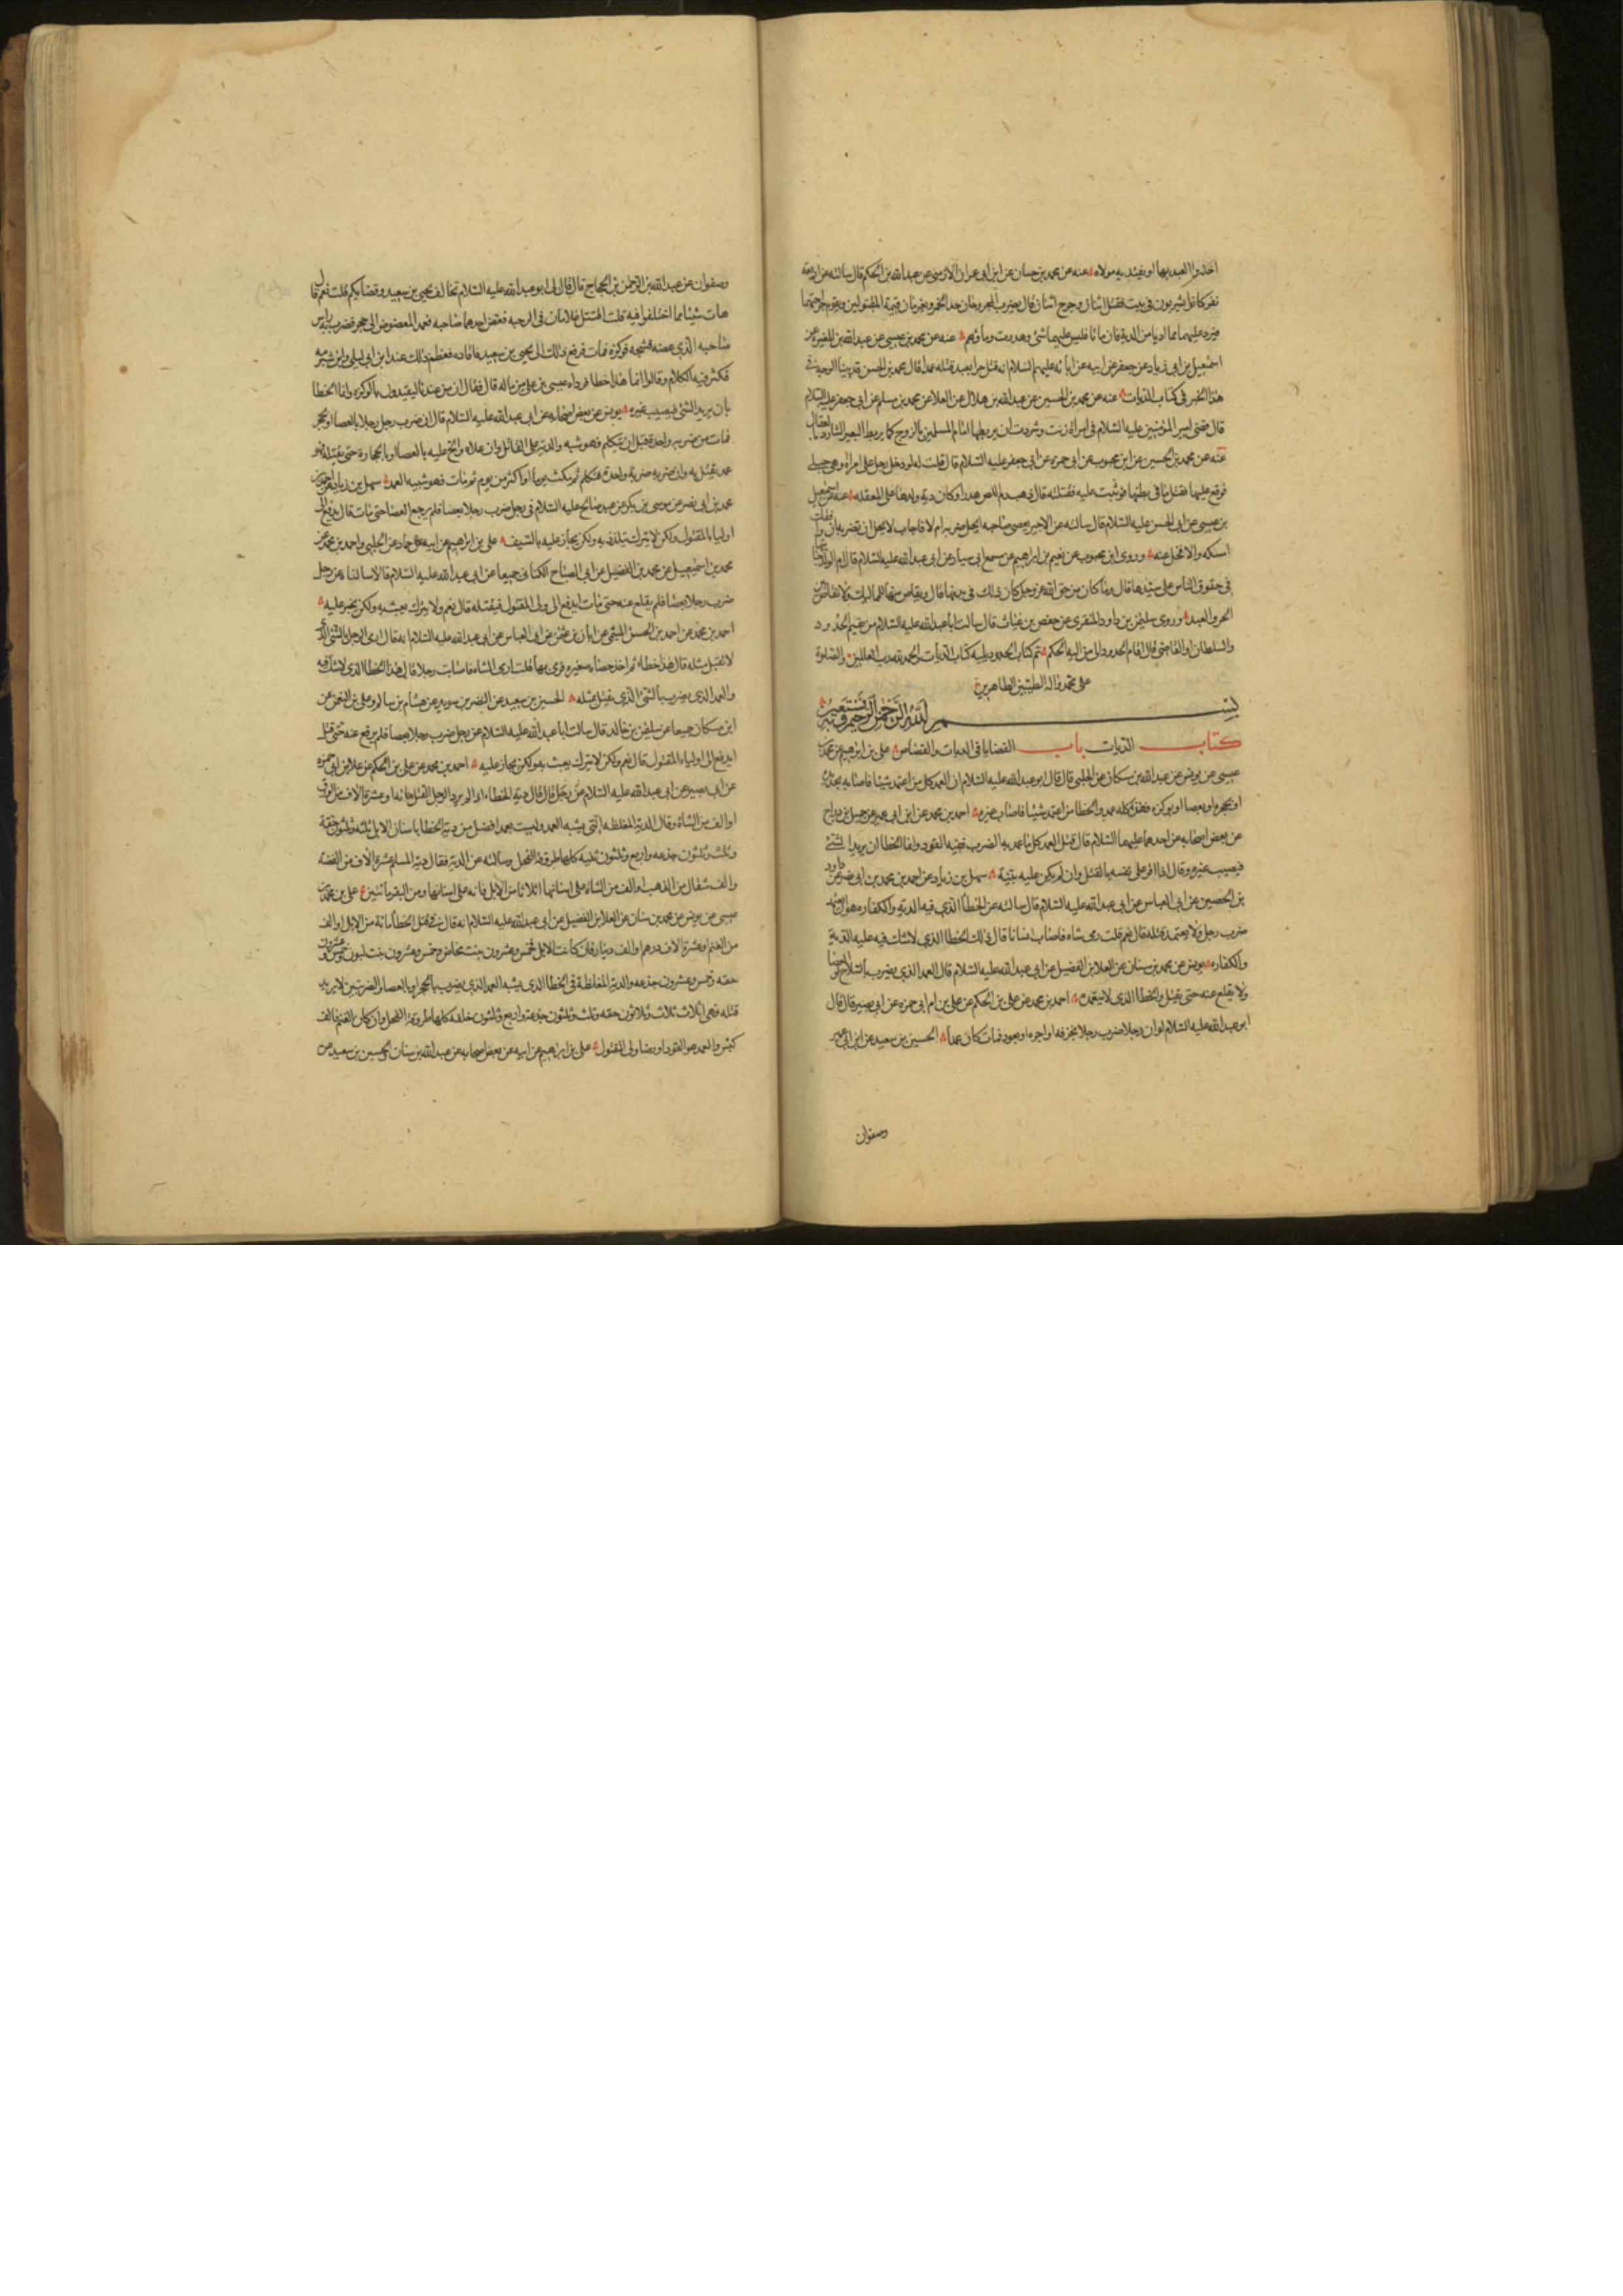 اخذوا العبد بها او يفتديه مولاه عنه عن محمد بن حسان عن ابن ابي عمران الارمني عن عبدالله بن الحكم قال سالته عن اربعة
نفر كانوا يشربون في بيت فقتل اثنان وجرح اثنان قال يضرب المجروحان حد الخمر ويغرمان قيمة المقتولين وتقوم جراحتهما
فيرد عليهما مما اديا من الدية فان ماتا فليس عليهما شئ وهدرت دماؤهم عنه عن محمد بن عيسى عن عبدالله بن المغيره عن
اسمعيل بن ابي زياد عن جعفر عن ابيه عن ابائه عليهم السلام انه قتل حرا بعبد قتله عمدا قال محمد بن الحسن قد بينا الوجه في
هذا الخبر في كتاب الديات عنه عن محمد بن الحسين عن عبدالله بن هلال عن العلا عن محمد بن مسلم عن ابي جعفر عليه السلام
قال قضى امير المؤمنين عليه السلام في امراة زنت وشردت ان يربطها امام المسلمين بالزوج كما يربط البعير الشارد بالعقال
عنه عن محمد بن الحسين عن ابن محبوب عن ابي حمزه عن ابي جعفر عليه السلام قال قلت له لو دخل رجل على امراة وهي حبلى
فوقع عليها فقتل ما في بطنها فوثبت عليه فقتلته قال ذهب دم اللص هدرا وكان دية ولدها على المعقله عنه عن اسمعيل
بن عيسى عن ابي الحسن عليه السلام قال سالته عن الاجير يعصي صاحبه ايحل ضربه ام لا فاجاب لا يحل ان تضربه ان وافقك
امسكه والا فخل عنه وروى ابن محبوب عن نعيم بن ابراهيم عن مسمع ابي سيار عن ابي عبدالله عليه السلام قال ام الولد جنايتها
في حقوق الناس على سيدها قال وما كان من حق الله عز وجل كان ذلك في بدنها قال ويقاص منها للمماليك ولا قصاص بين
الحر والعبد وروى سليمن بن داود المنقري عن حفص بن غياث قال سالت ابا عبدالله عليه السلام من يقيم الحدود
والسلطان او القاضي قال اقام الحدود الى من اليه الحكم تم كتاب الحدود ويليه كتاب الديات والحمد لله رب العالمين والصلوة
على محمد واله الطيبين الطاهرين
بسم الله الرحمن الرحيم وبه نستعين
كتاب الديات باب القضايا في الديات والقصاص على بن ابرهيم عن محمد بن
عيسى عن يونس عن عبدالله بن مسكان عن الحلبي قال قال ابو عبدالله عليه السلام ان العمد كل من اعتمد شيئا فاصابه بحديده
او بحجر او بعصا او بوكزه فهذا كله عمد والخطا من اعتمد شيئا فاصاب غيره احمد بن محمد عن ابن ابي عمير عن جميل بن دراج
عن بعض اصحابه عن احدهما عليهما السلام قال قتل العمد كل ما عمد به الضرب ففيه القود وانما الخطا ان يريد الشئ
فيصيب غيره وقال اذا اقر على نفسه بالقتل قتل وان لم يكن عليه بينة سهل بن زياد عن احمد بن محمد بن ابي نصر عن داود
بن الحصين عن ابي العباس عن ابي عبدالله عليه السلام قال سالته عن الخطا الذي فيه الدية والكفاره هو ان يتعمد
ضرب رجل ولا يعتمد قتله قال نعم قلت رمى شاة فاصاب انسانا قال ذلك الخطا الذي لا شك فيه عليه الدية
والكفاره يونس عن محمد بن سنان عن العلا بن الفضيل عن ابي عبدالله عليه السلام قال العمد الذي يضرب بالسلاح او العصا
ولا يقلع عنه حتى يقتل والخطا الذي لا يتعمده احمد بن محمد عن علي بن الحكم عن علي بن ابي حمزه عن ابي بصير قال قال
ابو عبدالله عليه السلام لو ان رجلا ضرب رجلا بخزفه او اجره او بعود فمات كان عمدا الحسين بن سعيد عن ابن ابي عمير
وصفوان
وصفوان عن عبدالله بن الرحمن بن الحجاج قال قال لي ابو عبدالله عليه السلام تخالف يحيى بن سعيد وقضاتكم قلت نعم قال
هات شيئا مما اختلفوا فيه قلت اقتتل غلامان في الرحبه فعض احدهما صاحبه فعمد المعضوض الى حجر فضرب به راس
صاحبه الذي عضه فشجه فوكزه فمات فرفع ذلك الى يحيى بن سعيد فاقاده فعظم ذلك عند ابن ابي ليلى وابن شبرمه
فكثر فيه الكلام وقالوا انما هذا خطا فوداه عيسى بن علي من ماله قال فقال ان من عندنا ليقيدون بالوكزه وانما الخطا
بان يريد الشئ فيصيب غيره يونس عن بعض اصحابه عن ابي عبدالله عليه السلام قال ان ضرب رجل رجلا بالعصا او بحجر
فمات من ضربه واحدة قبل ان يتكلم فهو شبيه والدية على القاتل وان علاه والح عليه بالعصا او بالحجاره حتى يقتله فهو
عمد يقتل به وان ضربه ضربة واحدة فتكلم ثم مكث يوما او اكثر من يوم ثم مات فهو شبيه العمد سهل بن زياد عن احمد بن
محمد بن ابي نصر عن موسى بن بكر عن عبد صالح عليه السلام في رجل ضرب رجلا بعصا فلم يرفع العصا حتى مات قال يدفع الى
اولياء المقتول ولكن لا يترك يتلذذ به ولكن يجاز عليه بالسيف علي بن ابراهيم عن ابيه عن حماد عن الحلبي واحمد بن محمد عن
محمد بن اسمعيل عن محمد بن الفضيل عن ابي الصباح الكناني جميعا عن ابي عبدالله عليه السلام قالا سالناه عن رجل
ضرب رجلا بعصا فلم يقلع عنه حتى مات ايدفع الى ولى المقتول فيقتله قال نعم ولا يترك يعبث به ولكن يجيز عليه
احمد بن محمد عن احمد بن الحسن الميثمي عن ابان بن عثمن عن ابي العباس عن ابي عبدالله عليه السلام انه قال ارمي الرجل بالشئ الذي
لا يقتل مثله قال هذا خطا ثم اخذ حصاة صغيره فرمى بها قلت ارمي الشاة فاصابت رجلا قال هذا الخطا الذي لا شك فيه
والعمد الذي يضرب بالشئ الذي يقتل مثله الحسين بن سعيد عن النضر بن سويد عن هشام بن سالم وعلي بن النعمن عن
ابن مسكان جميعا عن سليمن بن خالد قال سالت ابا عبدالله عليه السلام عن رجل ضرب رجلا بعصا فلم يرفع عنه حتى قتل
ايدفع الى اولياء المقتول قال نعم ولكن لا يترك يعبث به ولكن يجاز عليه احمد بن محمد عن علي بن الحكم عن علي بن ابي حمزه
عن ابي بصير عن ابي عبدالله عليه السلام قال دية الخطاء اذا لم يرد الرجل القتل مائة او عشرة الاف من الورق
او الف من الشاة وقال الدية المغلظه التي يشبه العمد وليست بعمد افضل من دية الخطا باسنان الابل ثلثه وثلثون حقة
وثلث وثلثون جذعه واربع وثلثون ثنيه كلها طروقة الفحل وسالته عن الدية فقال دية المسلم عشرة الاف من الفضه
والف مثقال من الذهب او الف من الشاة على اسنانها اثلاثا من الابل مائه على اسنانها ومن البقر مائتين علي بن محمد بن
عيسى عن يونس عن محمد بن سنان عن العلا بن الفضيل عن ابي عبدالله عليه السلام انه قال في قتل الخطا مائة من الابل او الف
من الغنم او عشرة الاف درهم او الف دينار فان كانت الابل فخمس وعشرون بنت مخاض وخمس وعشرون بنت لبون وخمس وعشرون
حقه وخمس وعشرون جذعه والدية المغلظة في الخطا الذي يشبه العمد الذي يضرب بالحجر او بالعصا الضربتين لا يريد
قتله فهي اثلاث ثلاث وثلاثون حقه وثلث وثلثون جذعة واربع وثلثون خلفه كلها طروقة الفحل وان كان الغنم فالف
كبش والعمد هو القود او رضا ولى المقتول علي بن ابراهيم عن ابيه عن بعض اصحابه عن عبدالله بن سنان الحسين بن سعيد عن